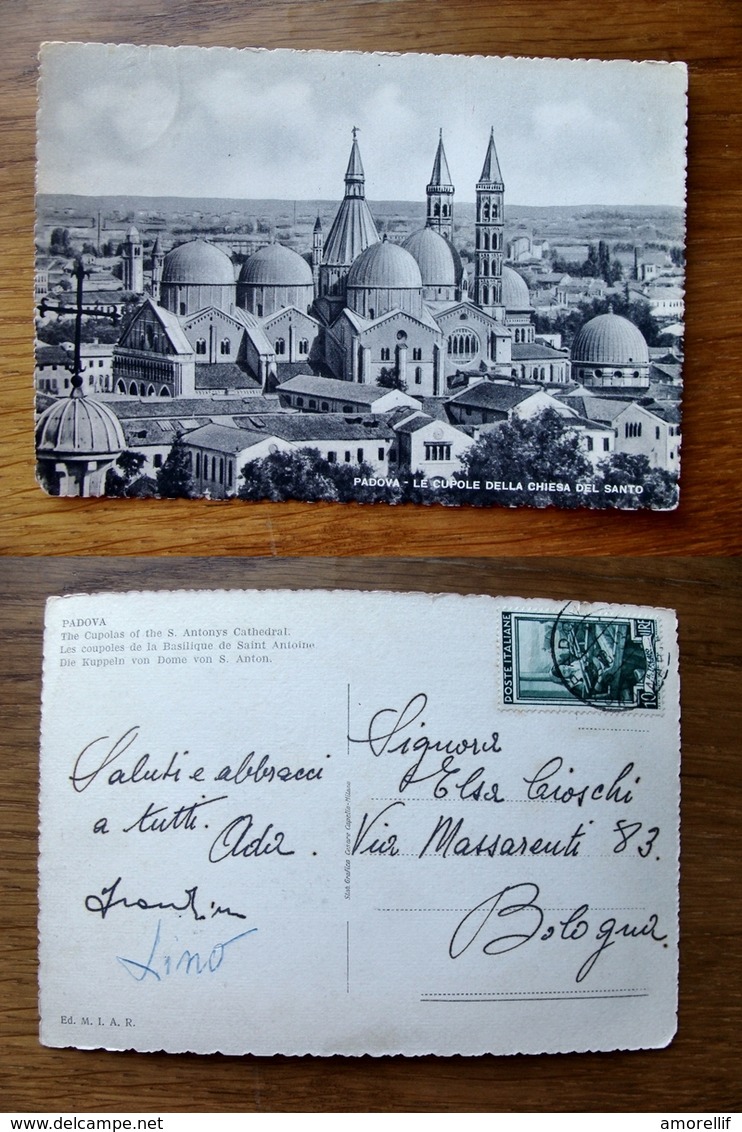 PADOVA - LE CUPOLE DELLA CHIESA DEL SANTO
PADOVA
The Cupolas of the S. Antonys Cathedral.
Les coupoles de la Basilique de Saint Antoine
Die Kuppeln von Dome von S. Anton.
POSTE ITALIANE
10 LIRE
Saluti e abbracci
a tutti.
Ada.
Lino
Ed. M. I. A. R.
Stab. Grafico Cesare Capello - Milano
Signora
Elsa Cioschi
Via Massarenti 83.
Bologna.
amorellif